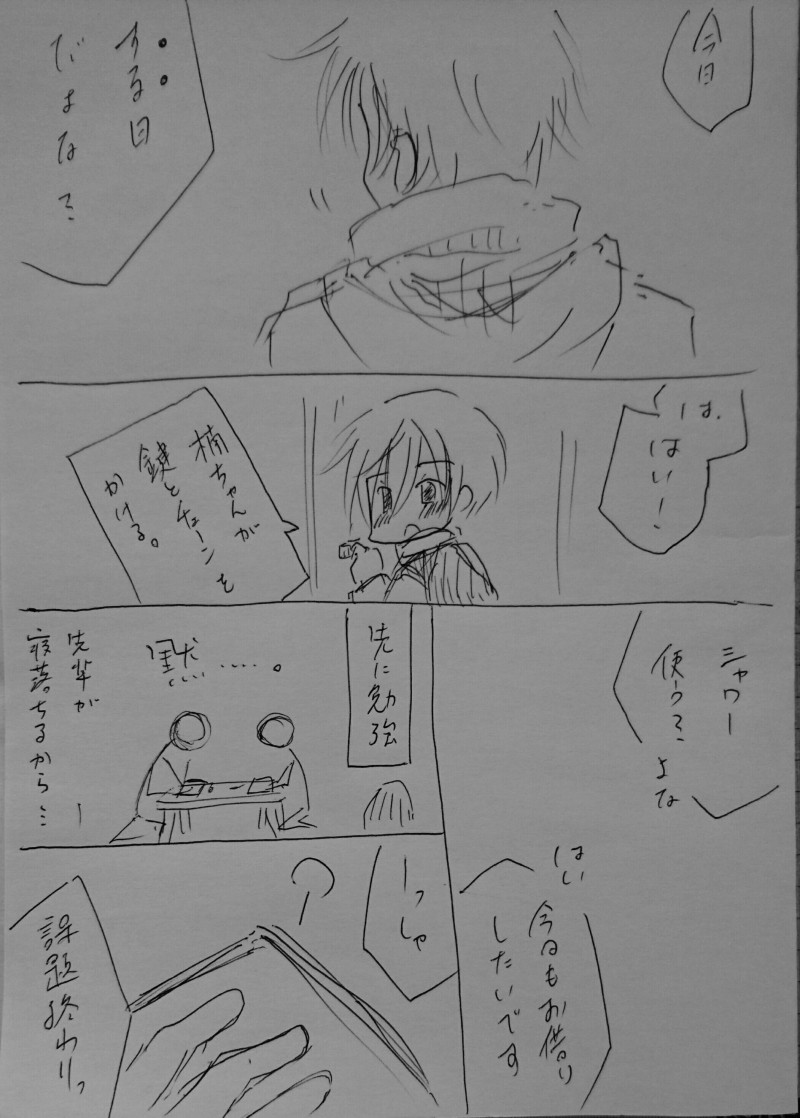 今日
する日
だよな…
は、
はい!
楠ちゃんが
鍵とチェーンを
かける。
シャワー
使う…よな
はい
今日もお借り
したいです
先に勉強
黙……。
先輩が
寝落ちるから…
ーっしゃ
課題終わりっ